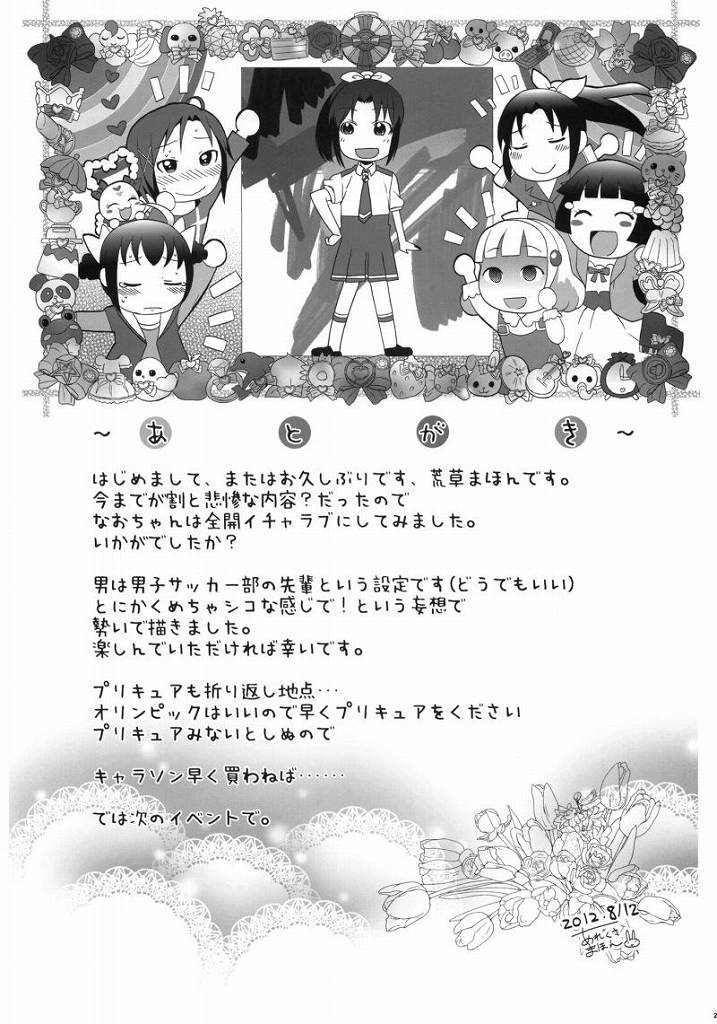 ～ あ と が き ～
はじめまして、またはお久しぶりです、荒草まほんです。
今までが割と悲惨な内容？だったので
なおちゃんは全開イチャラブにしてみました。
いかがでしたか？
男は男子サッカー部の先輩という設定です(どうでもいい)
とにかくめちゃシコな感じで！という妄想で
勢いで描きました。
楽しんでいただければ幸いです。
プリキュアも折り返し地点…
オリンピックはいいので早くプリキュアをください
プリキュアみないとしぬので
キャラソン早く買わねば……
では次のイベントで。
2012.8/12
あれくさ
まほん
2